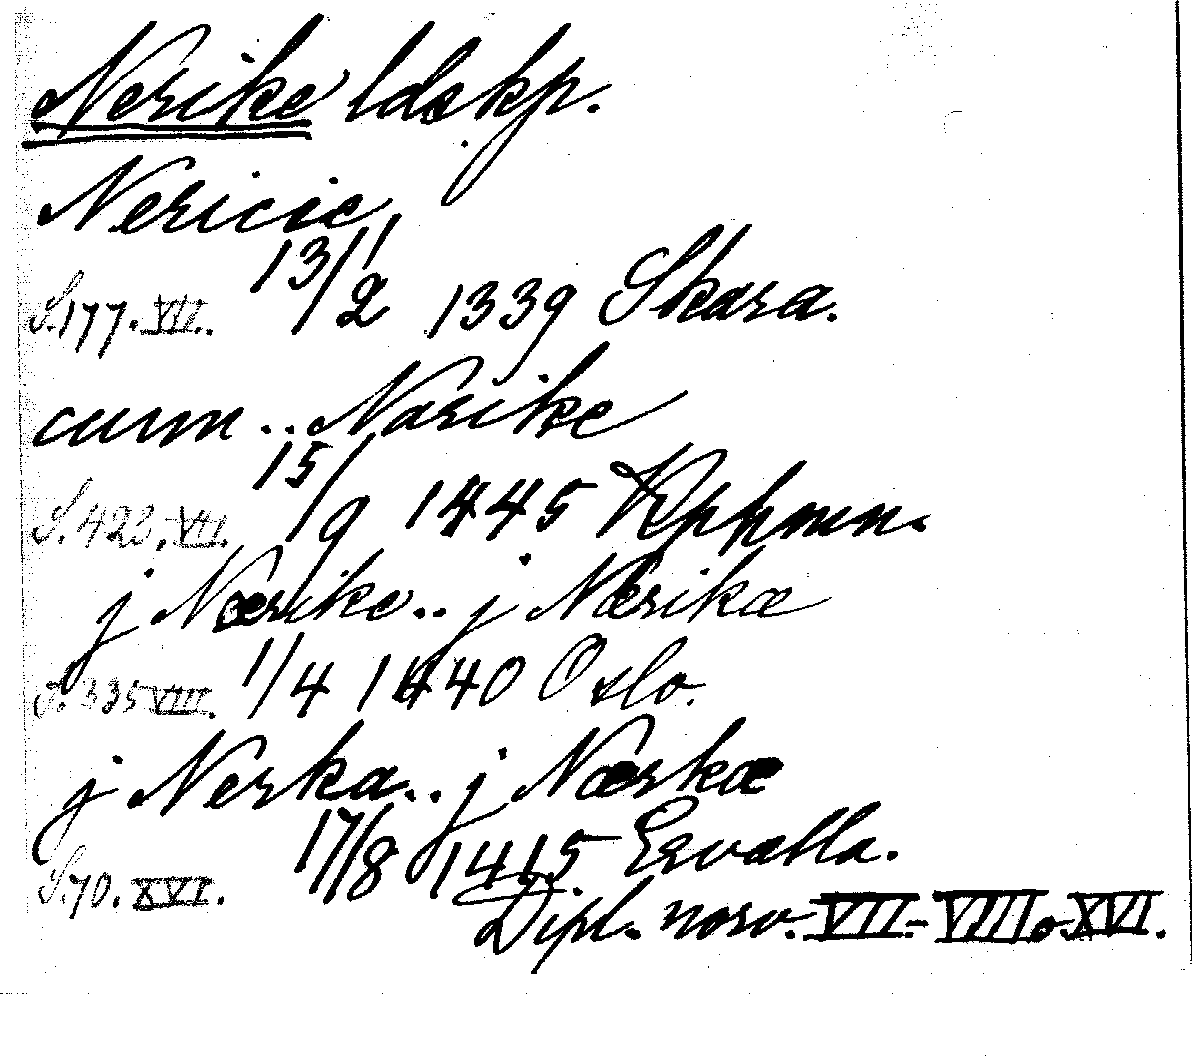 Nerike ldskp.
Nericie
S. 177. VII. 13/2 1339 Skara.
cum .. Narike
S. 423. VII. 15/9 1445 Kphmn.
j Nærike .. j Nærikæ
S. 335 VIII. 1/4 1440 Oslo.
j Nerka .. j Nærkæ
S. 70. XVI. 17/8 1415 Ervalla.
Dipl. norv. VII - VIII o XVI.